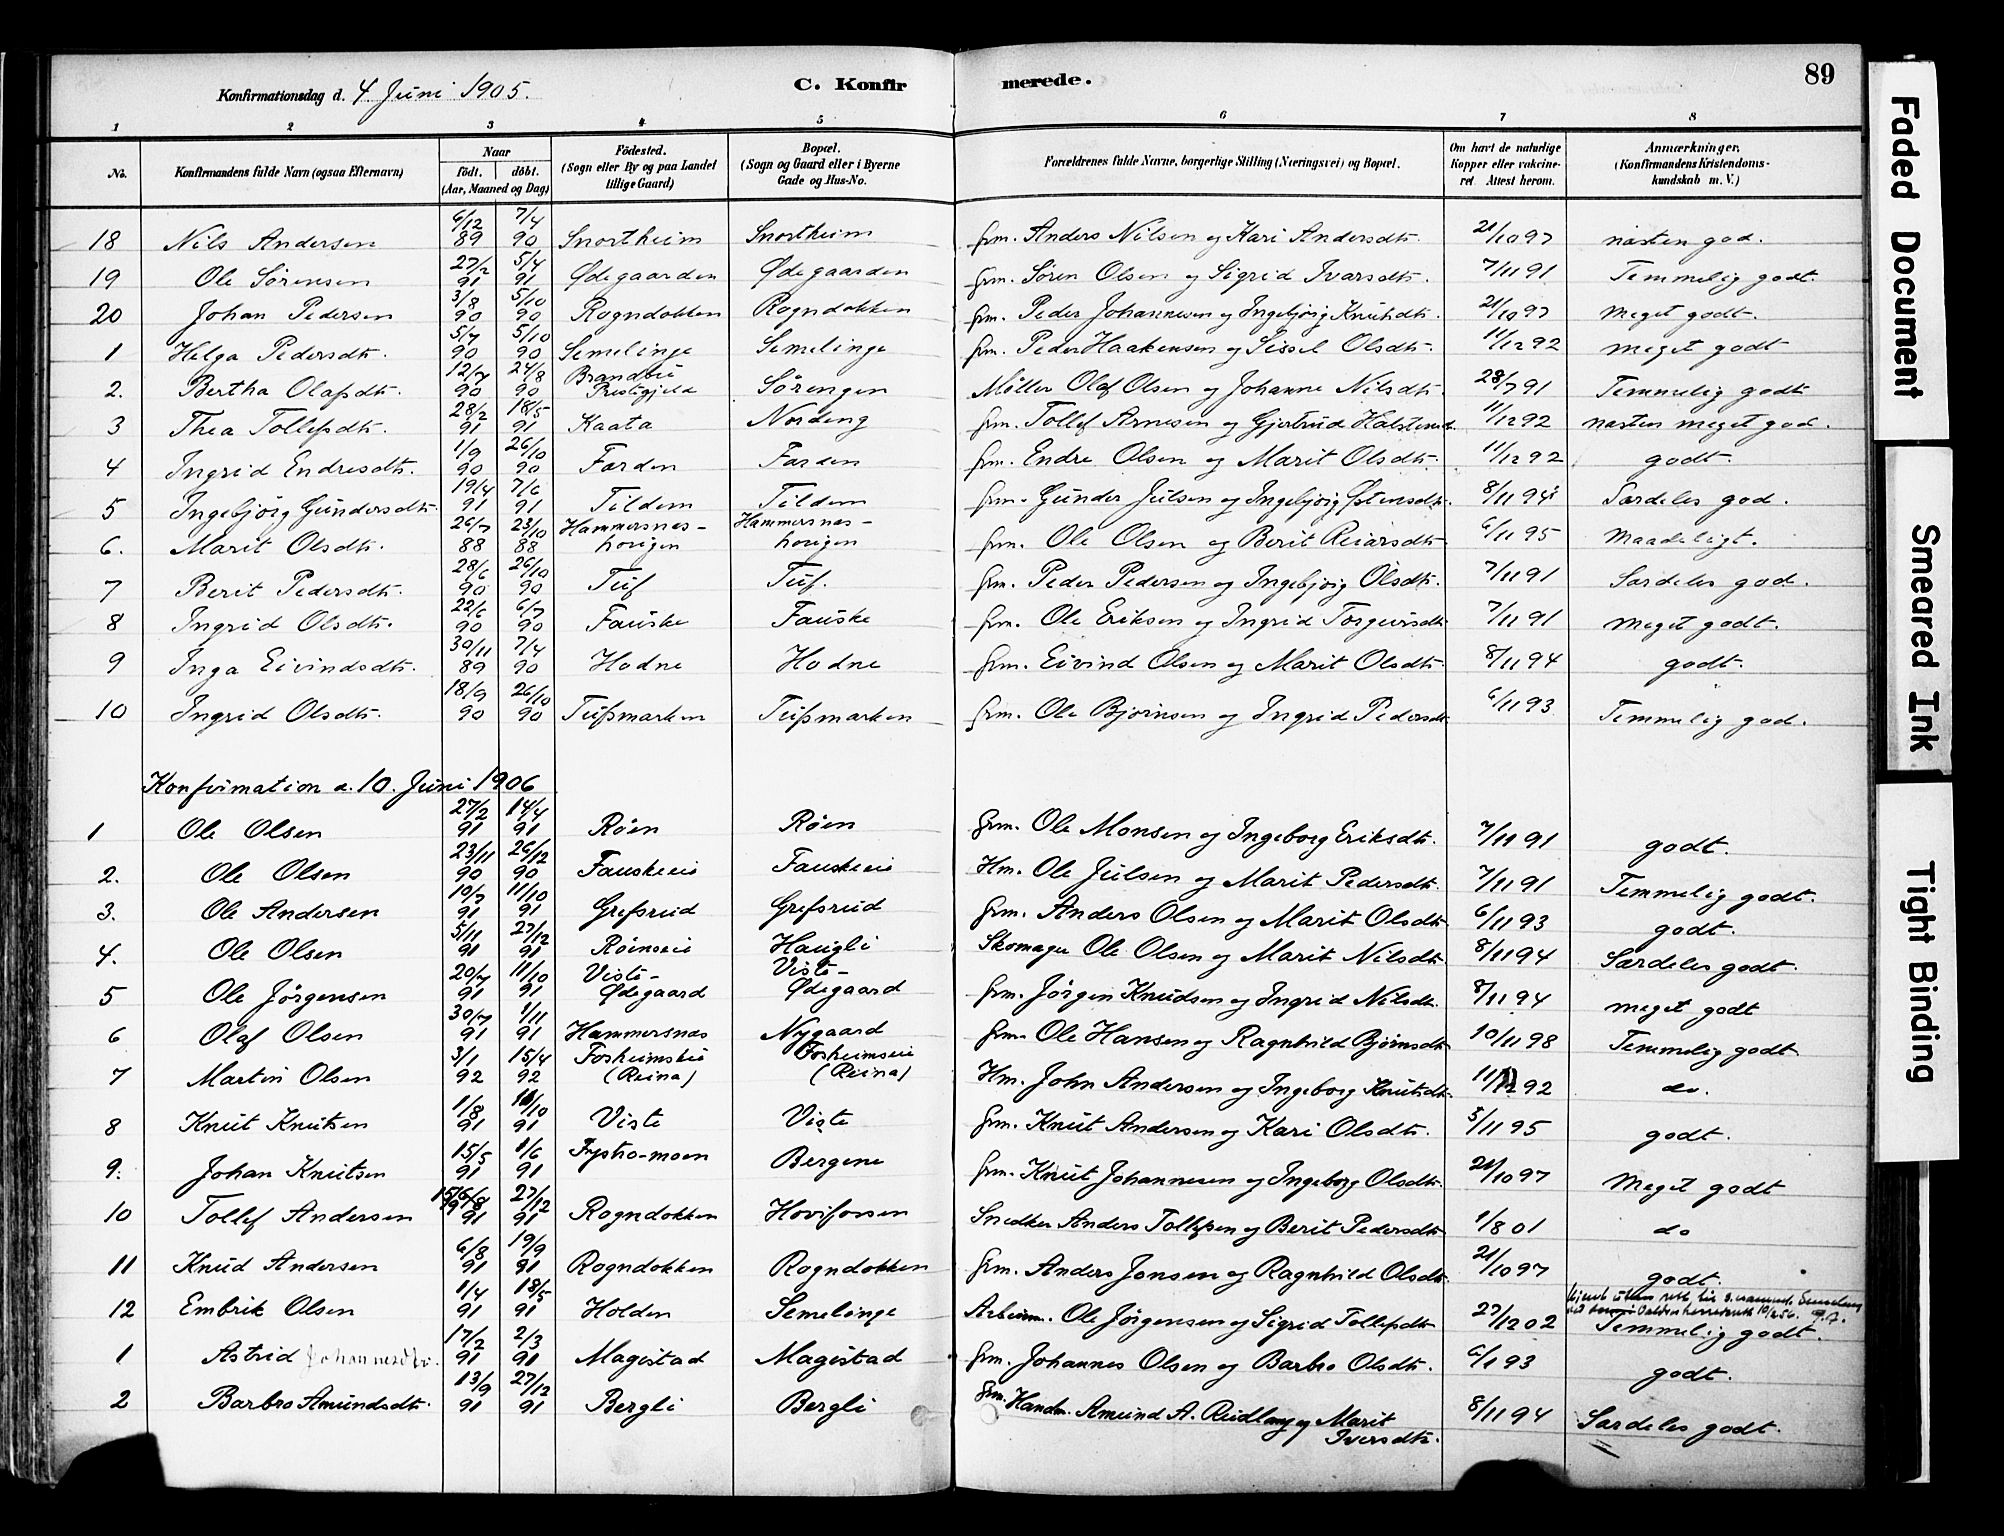 Konfirmationsdag d. 4 Juni 1905.
C. Konfirmerede.
89
1 2 3 4 5 6 7 8
No. Konfirmandens fulde Navn (ogsaa Efternavn) Naar födt. döbt. (Aar, Maaned og Dag) Födested. (Sogn eller By og paa Landet tillige Gaard) Bopæl. (Sogn og Gaard eller i Byerne Gade og Hus-No. Forældrenes fulde Navne, borgerlige Stilling (Næringsvei) og Bopæl. Om havt de naturlige Kopper eller vakcineret. Attest herom. Anmærkninger. (Konfirmandens Kristendomskundskab m. V.)
18 Nils Andersen 6/12 89 7/4 90 Snortheim Snortheim Grm. Anders Nilsen og Kari Andersdtr. 21/10 97 næsten god.
19 Ole Sørensen 27/2 91 5/4 91 Ødegaarden Ødegaarden Grm. Søren Olsen og Sigrid Ivarsdtr. 7/11 91 Temmelig godt.
20 Johan Pedersen 3/8 90 5/10 90 Rogndokken Rogndokken Grm. Peder Johannesen og Ingebjørg Knutsdtr. 21/10 97 meget godt.
1 Helga Pedersdtr. 5/7 90 5/10 90 Semelinge Semelinge Grm. Peder Haakensen og Sissel Olsdtr. 11/12 92 meget godt
2. Bertha Olafsdtr. 12/7 90 24/8 90 Brandbu Prestegjeld Sørengen Møller Olaf Olsen og Johanne Nilsdtr. 28/7 91 Temmelig godt
3 Thea Tollefsdtr. 28/2 91 18/5 91 Kaata Nordeng Grm. Tollef Arnesen og Gjertrud Halstensd. 11/12 92 næsten meget god.
4 Ingrid Endresdtr. 1/9 90 26/10 90 Farden Farden Grm. Endre Olsen og Marit Olsdtr. 11/12 92 godt.
5 Ingebjørg Gundersdtr. 19/4 91 7/6 91 Tildem Tildem Grm. Gunder Julsen og Ingebjørg Østensdtr. 8/11 94 Særdeles god.
6. Marit Olsdtr. 26/7 88 23/10 88 Hammersnes- horigen Hammersnes- horigen Grm. Ole Olsen og Berit Reiarsdtr. 6/11 95 Maadeligt.
7 Berit Pedersdtr. 28/6 90 26/10 90 Tuf Tuf. Grm. Peder Pedersen og Ingebjørg Olsdtr. 7/11 91 Særdeles god.
8 Ingrid Olsdtr. 22/6 90 6/7 90 Fauske Fauske Grm. Ole Eriksen og Ingrid Torgeirsdtr. 7/11 91 Meget godt.
9 Inga Eivindsdtr. 30/11 89 7/4 90 Hodne Hodne Grm. Eivind Olsen og Marit Olsdtr. 8/11 94 godt.
10 Ingrid Olsdtr. 18/9 90 26/10 90 Tufsmarken Tufsmarken Grm. Ole Bjørnsen og Ingrid Pedersdtr. 6/11 93 Temmelig god.
Konfirmation d. 10. Juni 1906
1 Ole Olsen 27/2 91 14/4 91 Røen Røen Grm. Ole Monsen og Ingeborg Eriksdtr. 7/11 91 godt.
2. Ole Olsen 23/11 90 26/12 90 Fauskeeie Fauskeeie Hm. Ole Julsen og Marit Pedersdtr. 7/11 91 Temmelig godt.
3. Ole Andersen 10/7 91 11/10 91 Grefsrud Grefsrud Grm. Anders Olsen og Marit Olsdtr. 6/11 93 godt.
4. Ole Olsen 5/11 91 27/12 91 Røinseie Haugli Skomager Ole Olsen og Marit Nilsdtr. 8/11 94 Særdeles godt.
5 Ole Jørgensen 20/7 91 11/10 91 Viste- Ødegaard Viste- Ødegaard Grm. Jørgen Knudsen og Ingrid Nilsdtr. 8/11 94 meget godt
6 Olaf Olsen 30/7 91 1/11 91 Hammersnæs Nygaard Grm. Ole Hansen og Ragnhild Bjørnsdtr. 10/11 98 Temmelig godt
7 Martin Olsen 3/1 92 15/4 92 Forheimseie (Reina) Forheimseie (Reina) Hm. John Andersen og Ingeborg Knutsdtr. 11/12 92 do.
8 Knut Knutsen 1/8 91 11/10 91 Viste Viste Grm. Knut Andersen og Kari Olsdtr. 5/11 95 godt.
9. Johan Knutsen 15/5 91 1/6 91 Fystro-moen Bergene Grm. Knut Johannesen og Ingeborg Olsdtr. 21/10 97 Meget godt
10 Tollef Andersen 91 27/12 91 Rogndokken Hovifossen Snedker Anders Tollefsen og Berit Pedersdtr. 1/8 01 do
11 Knud Andersen 6/8 91 19/9 91 Rogndokken Rogndokken Grm. Anders Jonsen og Ragnhild Olsdtr. 21/10 97 godt.
12 Embrik Olsen 1/4 91 18/5 91 Holden Semelinge Arbeidm. Ole Jørgensen og Sigrid Tollefsdtr. 27/12 02 Temmelig godt.
1 Astrid Johannesdtr. 17/2 91 2/3 91 Magistad Magistad Grm. Johannes Olsen og Barbro Olsdtr. 6/1 93 godt.
2 Barbro Amundsdtr. 13/9 91 27/12 91 Bergli Bergli Grm. Handm. Amund A. Reidlang og Marit Iversdtr. 8/11 94 Særdeles godt.
Faded Document
Smeared Ink
Tight Binding